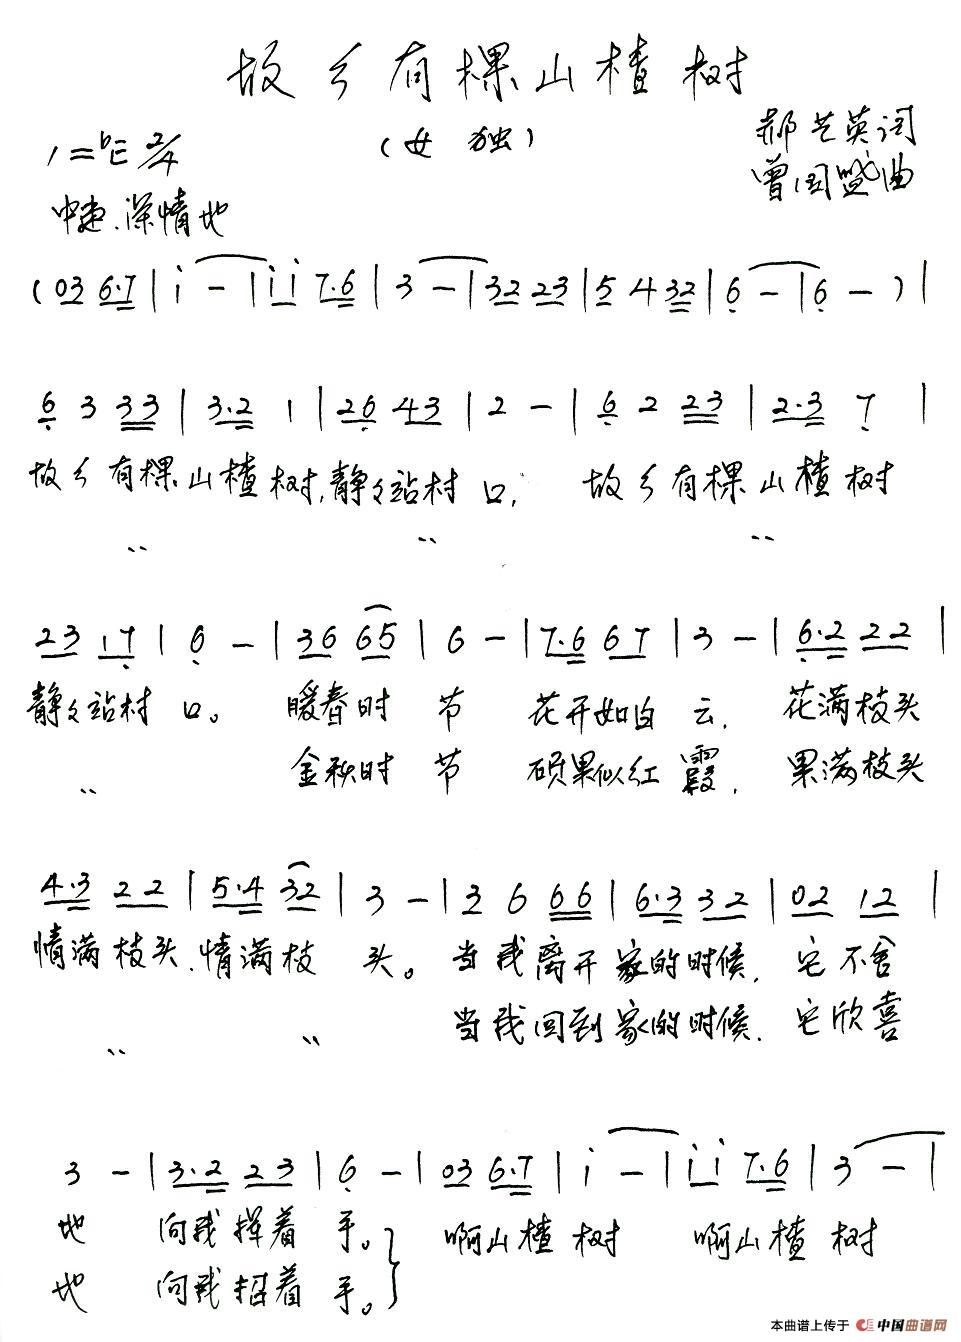 故乡有棵山楂树
(女 独)
1=♭E 2/4
郝艺英词
曾国盛曲
中速.深情地
(03 6·7 | i - | i i 7·6 | 3 - | 32 23 | 5 4 32 | 6 - | 6 - ) |
6 3 33 | 3·2 1 | 26 43 | 2 - | 6 2 23 | 2·3 7 |
故乡有棵山楂树,静々站村口, 故乡有棵山楂树
〃 〃 〃
23 17 | 6 - | 36 65 | 6 - | 7·6 67 | 3 - | 6·2 22 |
静々站村口。 暖春时节 花开如白云, 花满枝头
〃 金秋时节 硕果似红霞, 果满枝头
4·3 22 | 5·4 32 | 3 - | 3 6 66 | 6·3 32 | 02 12 |
情满枝头,情满枝头。 当我离开家的时候, 它不舍
〃 〃 当我回到家的时候, 它欣喜
3 - | 3·2 23 | 6 - | 03 6·7 | i - | i i 7·6 | 3 - |
地 向我挥着手。 啊山楂树 啊山楂树
地 向我招着手。
本曲谱上传于 中国曲谱网